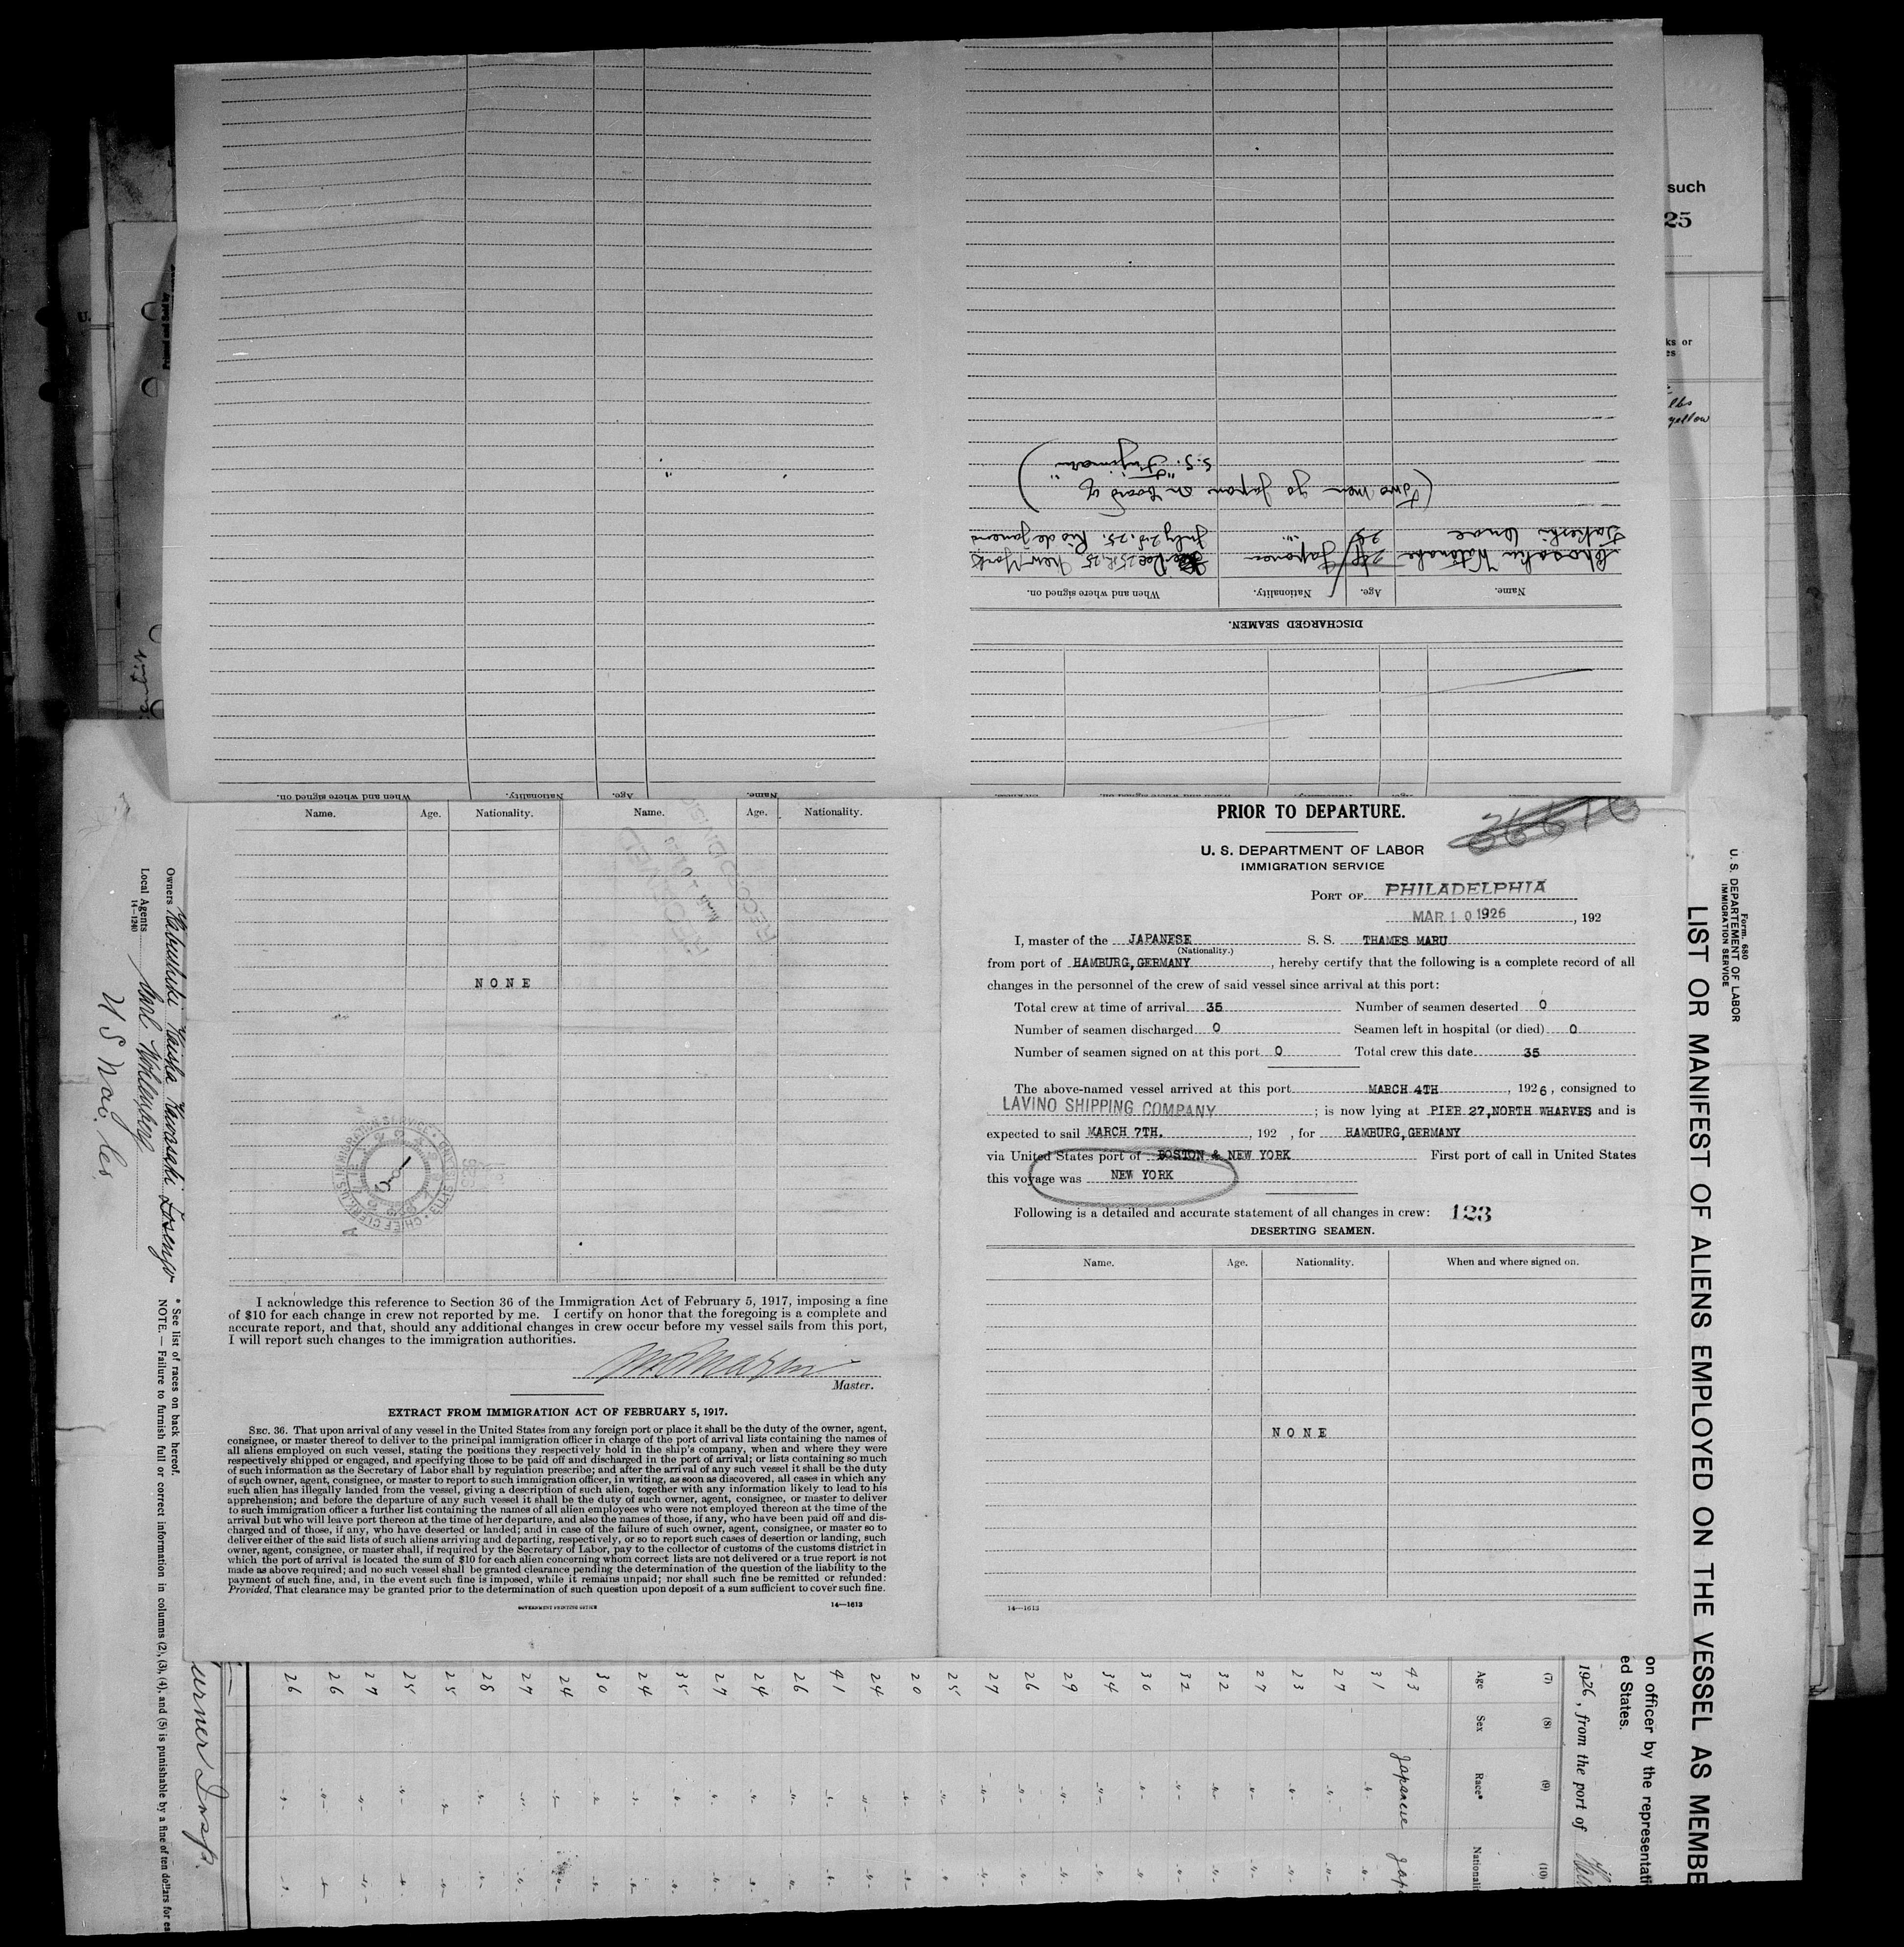 DISCHARGED SEAMEN.
Name.
Age.
Nationality.
When and where signed on.
Watanabe
Japanese
Dec 25. 25 New York
Takeshi
25
July 25. Rio de Janeiro
(Two men go Japan on board of
S.S. "Fujimaru")
When and where signed on.
Nationality.
Age.
Name.
such
25
ks or
es
lbs
yellow
Name. Age. Nationality. Name. Age. Nationality.
NONE
I acknowledge this reference to Section 36 of the Immigration Act of February 5, 1917, imposing a fine
of $10 for each change in crew not reported by me. I certify on honor that the foregoing is a complete and
accurate report, and that, should any additional changes in crew occur before my vessel sails from this port,
I will report such changes to the immigration authorities.
Master.
EXTRACT FROM IMMIGRATION ACT OF FEBRUARY 5, 1917.
SEC. 36. That upon arrival of any vessel in the United States from any foreign port or place it shall be the duty of the owner, agent,
consignee, or master thereof to deliver to the principal immigration officer in charge of the port of arrival lists containing the names of
all aliens employed on such vessel, stating the positions they respectively hold in the ship's company, when and where they were
respectively shipped or engaged, and specifying those to be paid off and discharged in the port of arrival; or lists containing so much
of such information as the Secretary of Labor shall by regulation prescribe; and after the arrival of any such vessel it shall be the duty
of such owner, agent, consignee, or master to report to such immigration officer, in writing, as soon as discovered, all cases in which any
such alien has illegally landed from the vessel, giving a description of such alien, together with any information likely to lead to his
apprehension; and before the departure of any such vessel it shall be the duty of such owner, agent, consignee, or master to deliver
to such immigration officer a further list containing the names of all alien employees who were not employed thereon at the time of the
arrival but who will leave port thereon at the time of her departure, and also the names of those, if any, who have been paid off and dis-
charged and of those, if any, who have deserted or landed; and in case of the failure of such owner, agent, consignee, or master so to
deliver either of the said lists of such aliens arriving and departing, respectively, or so to report such cases of desertion or landing, such
owner, agent, consignee, or master shall, if required by the Secretary of Labor, pay to the collector of customs of the customs district in
which the port of arrival is located the sum of $10 for each alien concerning whom correct lists are not delivered or a true report is not
made as above required; and no such vessel shall be granted clearance pending the determination of the question of the liability to the
payment of such fine, and, in the event such fine is imposed, while it remains unpaid; nor shall such fine be remitted or refunded:
Provided, That clearance may be granted prior to the determination of such question upon deposit of a sum sufficient to cover such fine.
GOVERNMENT PRINTING OFFICE
14—1613
PRIOR TO DEPARTURE.
U. S. DEPARTMENT OF LABOR
IMMIGRATION SERVICE
PORT OF PHILADELPHIA
MAR 10 1926, 192
I, master of the JAPANESE S. S. THAMES MARU
(Nationality.)
from port of HAMBURG, GERMANY, hereby certify that the following is a complete record of all
changes in the personnel of the crew of said vessel since arrival at this port:
Total crew at time of arrival 35 Number of seamen deserted 0
Number of seamen discharged 0 Seamen left in hospital (or died) 0
Number of seamen signed on at this port 0 Total crew this date 35
The above-named vessel arrived at this port MARCH 4TH, 1926, consigned to
LAVINO SHIPPING COMPANY; is now lying at PIER 27, NORTH WHARVES and is
expected to sail MARCH 7TH., 192 , for HAMBURG, GERMANY
via United States port of BOSTON & NEW YORK First port of call in United States
this voyage was NEW YORK
Following is a detailed and accurate statement of all changes in crew: 123
DESERTING SEAMEN.
Name. Age. Nationality. When and where signed on.
NONE
14—1613
Form 680
U. S. DEPARTMENT OF LABOR
IMMIGRATION SERVICE
LIST OR MANIFEST OF ALIENS EMPLOYED ON THE VESSEL AS MEMBE
on officer by the representati
ed States.
1926, from the port of
(7) (8) (9) (10)
Age Sex Race* Nationali
43 Japanese Japa
31
27
23
27
32
32
30
34
29
26
27
25
20
24
41
26
24
27
35
24
30
24
27
28
25
25
27
26
26
Owners Kabushiki Kaisha Kawasaki Zosenjo
Local Agents
14—1240
* See list of races on back hereof.
NOTE.—Failure to furnish full or correct information in columns (2), (3), (4), and (5) is punishable by a fine of ten dollars for ea
urner Insp.